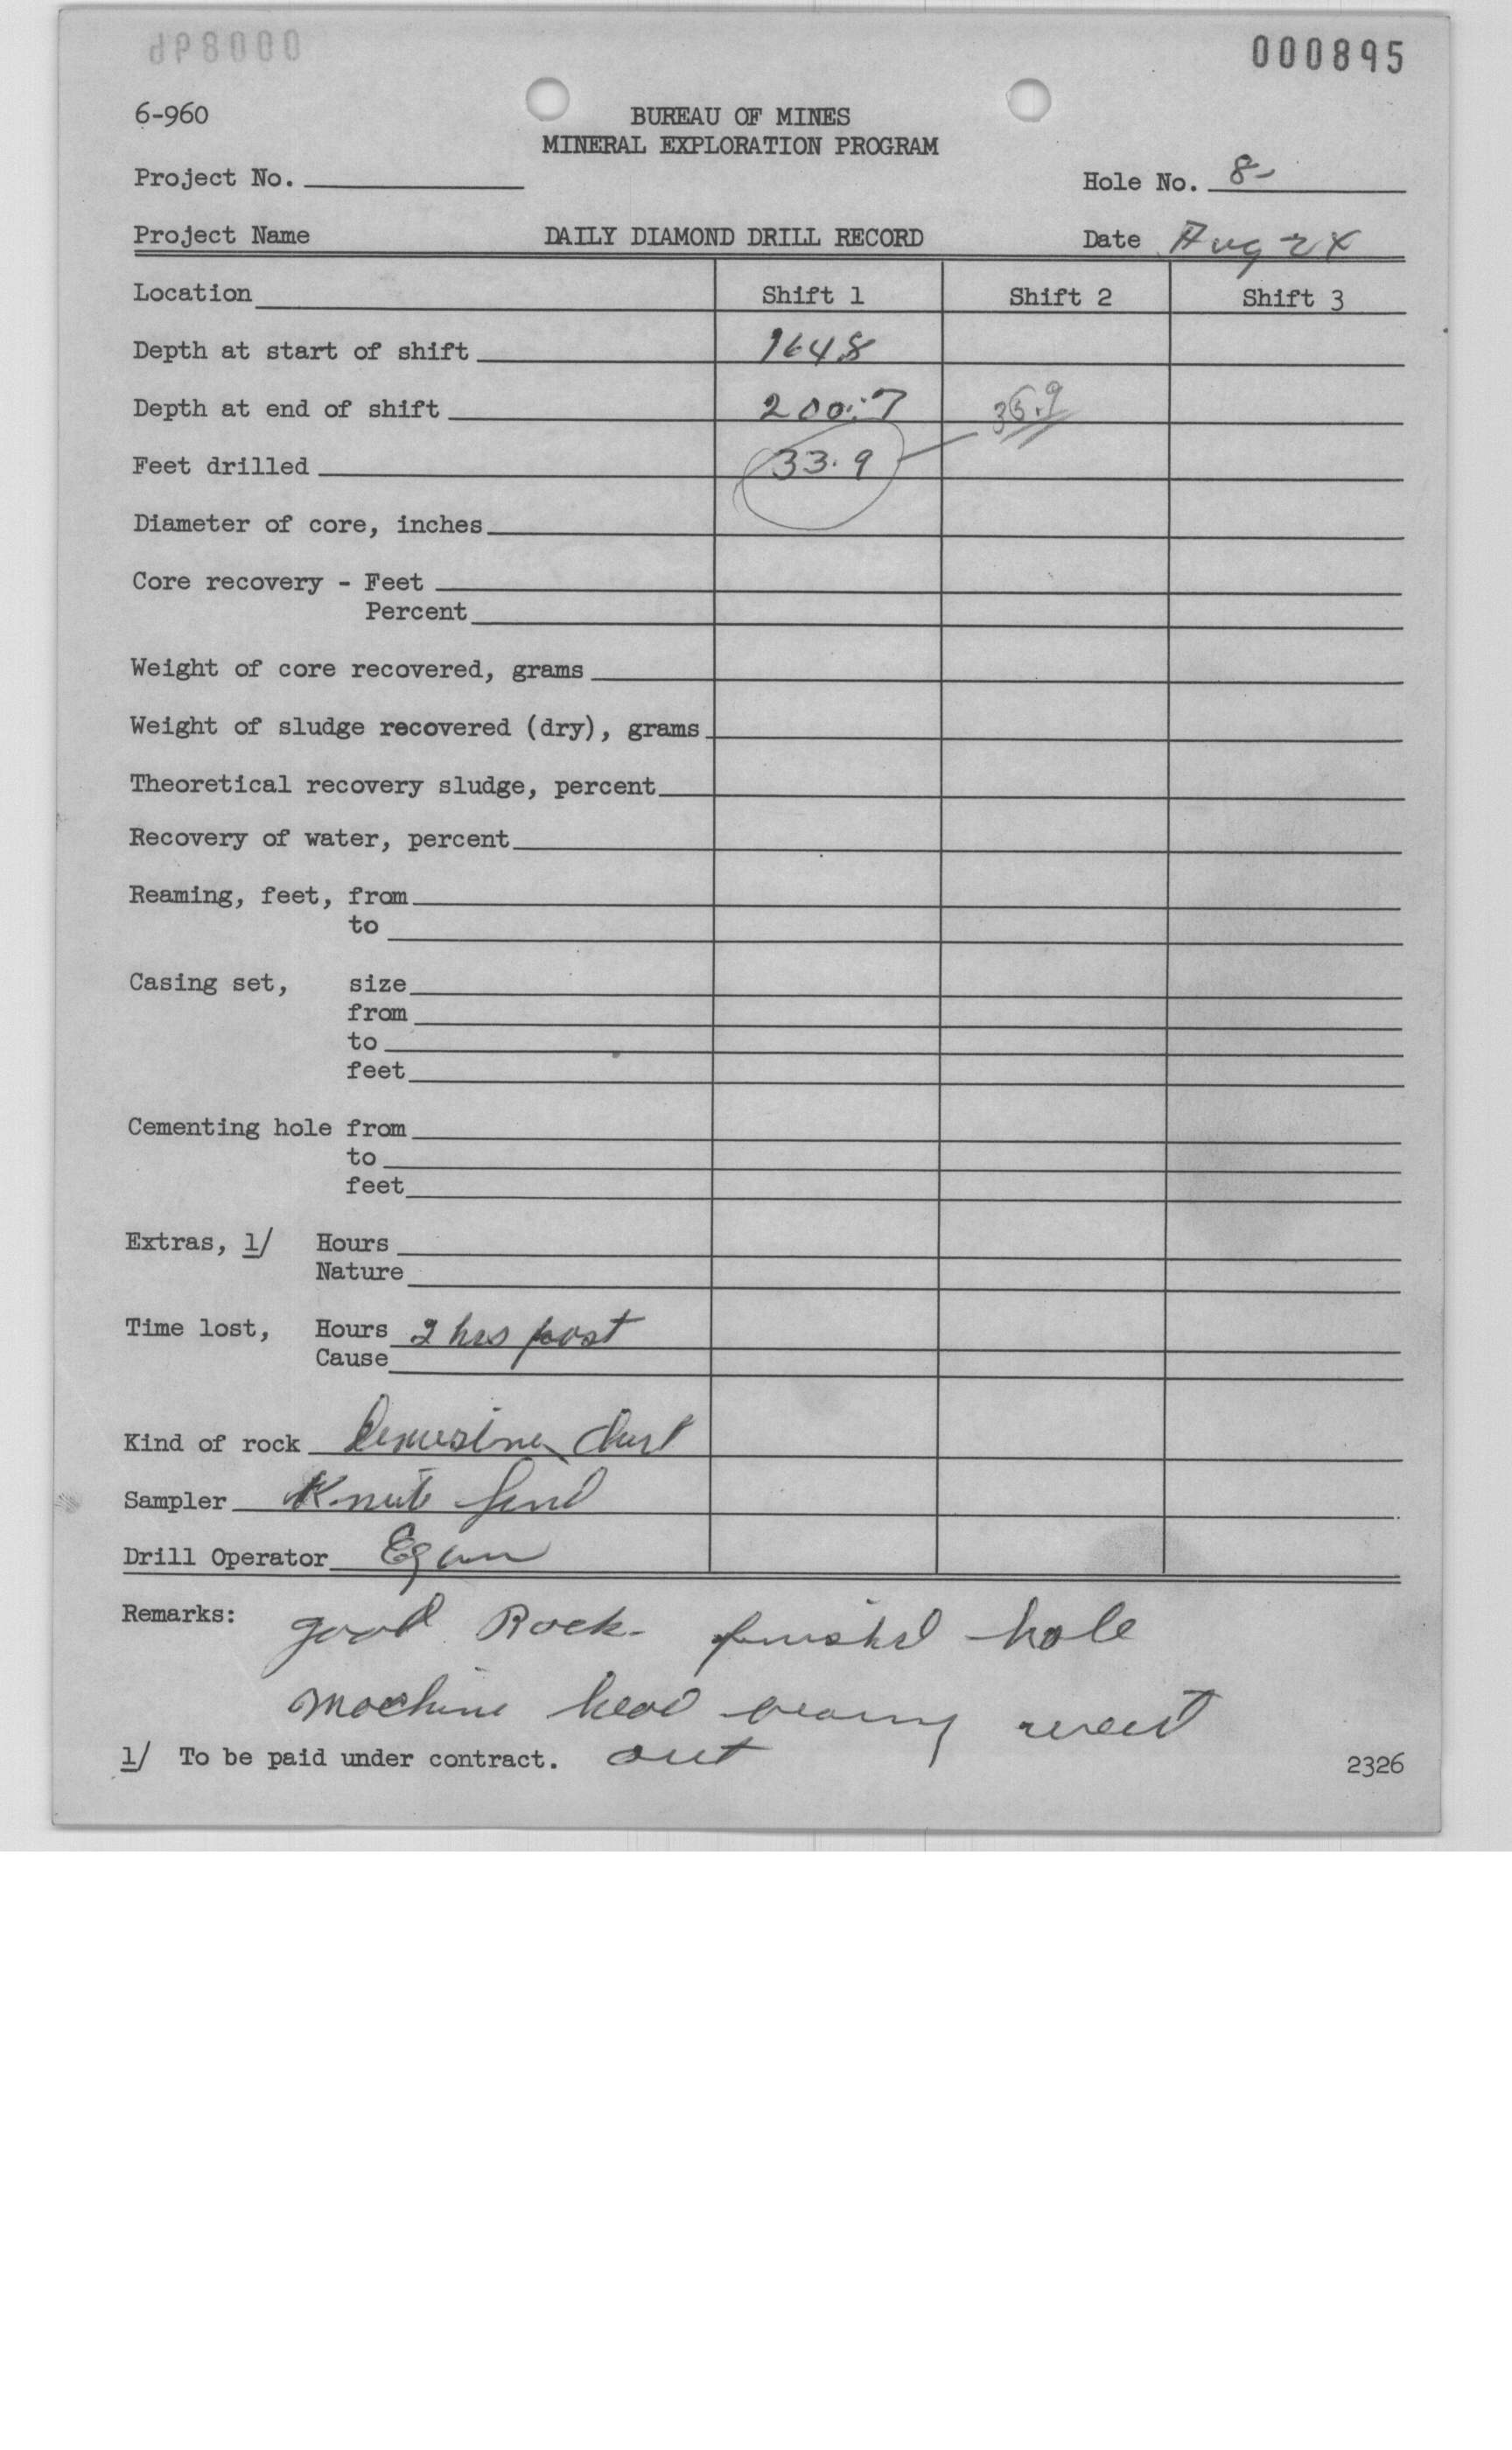 000895
6-960
BUREAU OF MINES
MINERAL EXPLORATION PROGRAM
Project No.
Hole No. 8-
Project Name DAILY DIAMOND DRILL RECORD Date Aug 24
Location Shift 1 Shift 2 Shift 3
Depth at start of shift 164.8
Depth at end of shift 200.7 35.9
Feet drilled 33.9
Diameter of core, inches
Core recovery - Feet
Percent
Weight of core recovered, grams
Weight of sludge recovered (dry), grams
Theoretical recovery sludge, percent
Recovery of water, percent
Reaming, feet, from
to
Casing set, size
from
to
feet
Cementing hole from
to
feet
Extras, 1/ Hours
Nature
Time lost, Hours 2 hrs
Cause
Kind of rock
Sampler Knute
Drill Operator Egan
Remarks: good Rock- finished hole
machine head bearing went
1/ To be paid under contract. out
2326